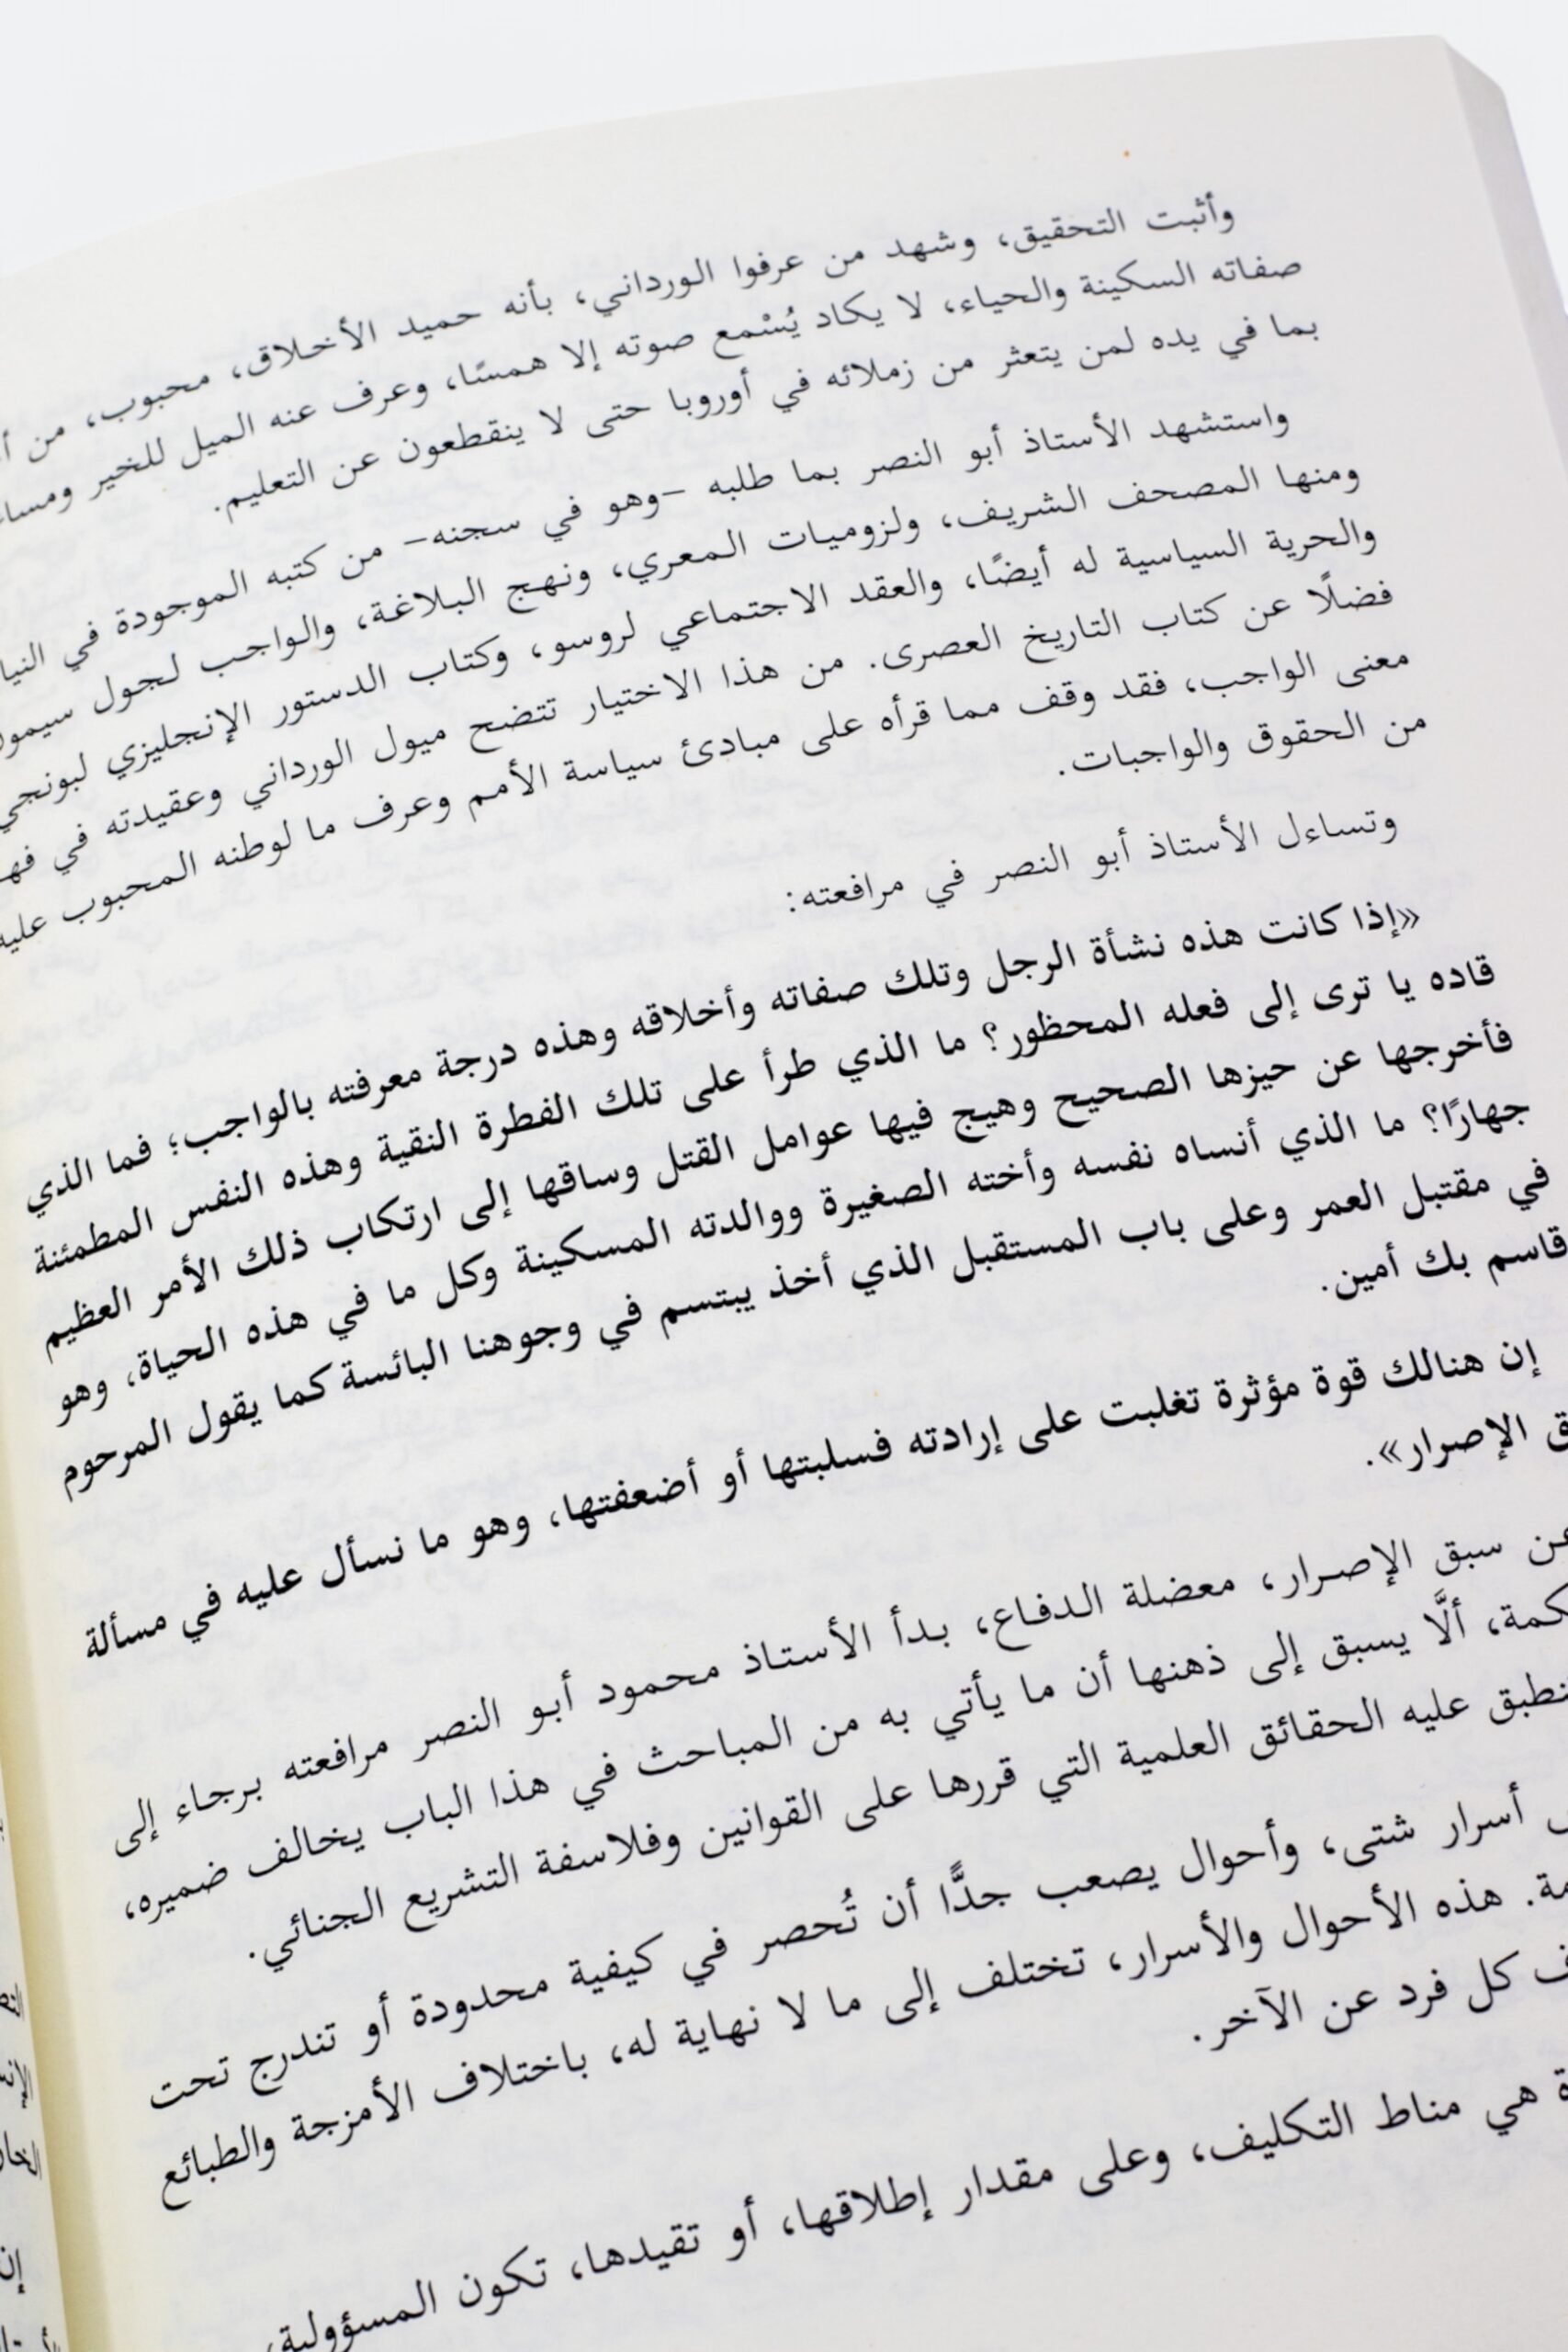 وأثبت التحقيق، وشهد من عرفوا الورداني، بأنه حميد الأخلاق، محبوب، من
صفاته السكينة والحياء، لا يكاد يُسْمع صوته إلا همسًا، وعرف عنه الميل للخير
بما في يده لمن يتعثر من زملائه في أوروبا حتى لا ينقطعون عن التعليم.
واستشهد الأستاذ أبو النصر بما طلبه –وهو في سجنه– من كتبه الموجودة في
ومنها المصحف الشريف، ولزوميات المعري، ونهج البلاغة، والواجب لجول
والحرية السياسية له أيضًا، والعقد الاجتماعي لروسو، وكتاب الدستور الإنجليزي
فضلًا عن كتاب التاريخ العصرى. من هذا الاختيار تتضح ميول الورداني وعقيدته في
معنى الواجب، فقد وقف مما قرأه على مبادئ سياسة الأمم وعرف ما لوطنه المحبوب عليه
من الحقوق والواجبات.
وتساءل الأستاذ أبو النصر في مرافعته:
«إذا كانت هذه نشأة الرجل وتلك صفاته وأخلاقه وهذه درجة معرفته بالواجب؛ فما الذي
قاده يا ترى إلى فعله المحظور؟ ما الذي طرأ على تلك الفطرة النقية وهذه النفس المطمئنة
فأخرجها عن حيزها الصحيح وهيج فيها عوامل القتل وساقها إلى ارتكاب ذلك الأمر العظيم
جهارًا؟ ما الذي أنساه نفسه وأخته الصغيرة ووالدته المسكينة وكل ما في هذه الحياة، وهو
في مقتبل العمر وعلى باب المستقبل الذي أخذ يبتسم في وجوهنا البائسة كما يقول المرحوم
قاسم بك أمين.
إن هنالك قوة مؤثرة تغلبت على إرادته فسلبتها أو أضعفتها، وهو ما نسأل عليه في مسألة
الإصرار».
عن سبق الإصرار، معضلة الدفاع، بدأ الأستاذ محمود أبو النصر مرافعته برجاء إلى
ألَّا يسبق إلى ذهنها أن ما يأتي به من المباحث في هذا الباب يخالف ضميره،
عليه الحقائق العلمية التي قررها على القوانين وفلاسفة التشريع الجنائي.
أسرار شتى، وأحوال يصعب جدًّا أن تُحصر في كيفية محدودة أو تندرج تحت
هذه الأحوال والأسرار، تختلف إلى ما لا نهاية له، باختلاف الأمزجة والطبائع
كل فرد عن الآخر.
هي مناط التكليف، وعلى مقدار إطلاقها، أو تقيدها، تكون المسؤولية،